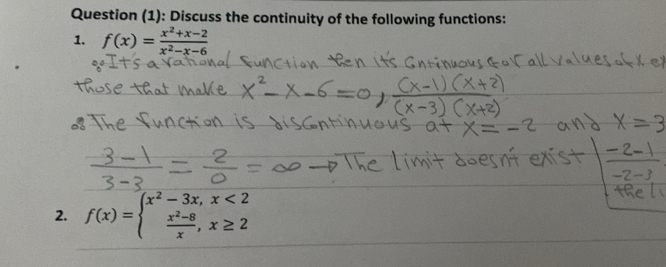 Question (1): Discuss the continuity of the following functions:
1. f(x) = (x²+x−2)/(x²−x−6)
∴ It's a rational function then it's Continuous for all values of x ex
those that make x²-x-6=0, (x-1)(x+2)/(x-3)(x+2)
∴ The function is discontinuous at x=-2 and x=3
(3-1)/(3-3) = 2/0 = ∞ → The limit doesn't exist | (-2-1)/(-2-3)
the li
2. f(x) = { x² − 3x, x < 2
(x²−8)/x, x ≥ 2